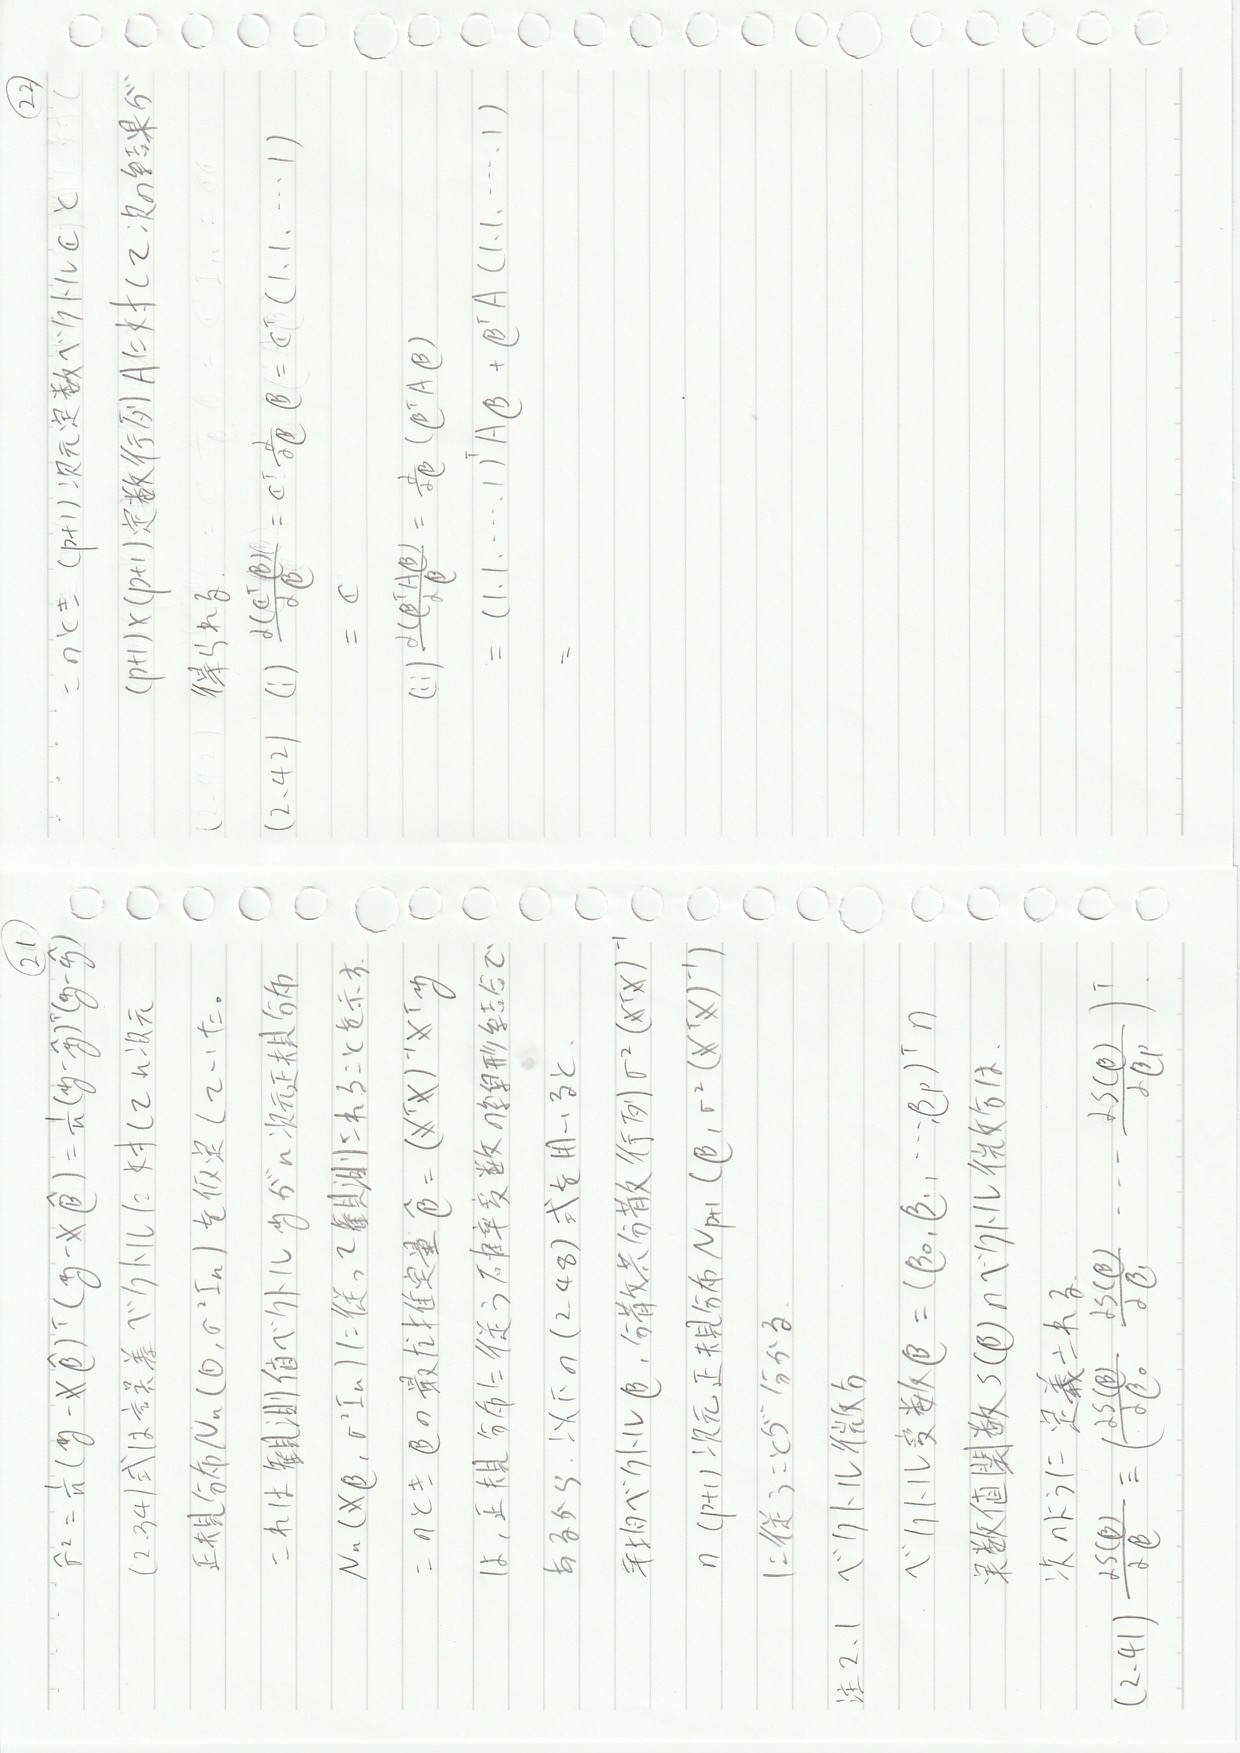 21
σ̂² = 1/n (y - Xβ̂)ᵀ (y - Xβ̂) = 1/n (y-ŷ)ᵀ(y-ŷ)
(2.34)式は誤差ベクトルに対してn次元
正規分布Nn(0, σ²In)を仮定していた。
これは観測値ベクトルyがn次元正規分布
Nn(Xβ, σ²In)に従って観測されることを示す.
このときβの最尤推定量β̂ = (XᵀX)⁻¹Xᵀy
は, 正規分布に従う確率変数の線形結合で
あるから, 以下の(2.48)式を用いると,
平均ベクトルβ, 分散共分散行列σ²(XᵀX)⁻¹
の(p+1)次元正規分布Np+1(β, σ²(XᵀX)⁻¹)
に従うことが分かる.
注2.1 ベクトル微分
ベクトル変数β = (β₀, β₁, …, βp)ᵀの
実数値関数S(β)のベクトル微分は,
次のように定義される.
(2.41) ∂S(β)/∂β ≡ (∂S(β)/∂β₀ ∂S(β)/∂β₁ --- ∂S(β)/∂βp)ᵀ.
22
このとき(p+1)次元定数ベクトルcと
(p+1)×(p+1)定数行列Aに対して次の結果が
得られる.
(2.42) (i) ∂(cᵀβ)/∂β = cᵀ ∂/∂β β = cᵀ (1, 1, … 1)
= c
(ii) ∂(βᵀAβ)/∂β = ∂/∂β (βᵀAβ)
= (1, 1, …, 1)ᵀAβ + βᵀA (1, 1, …, 1)
=